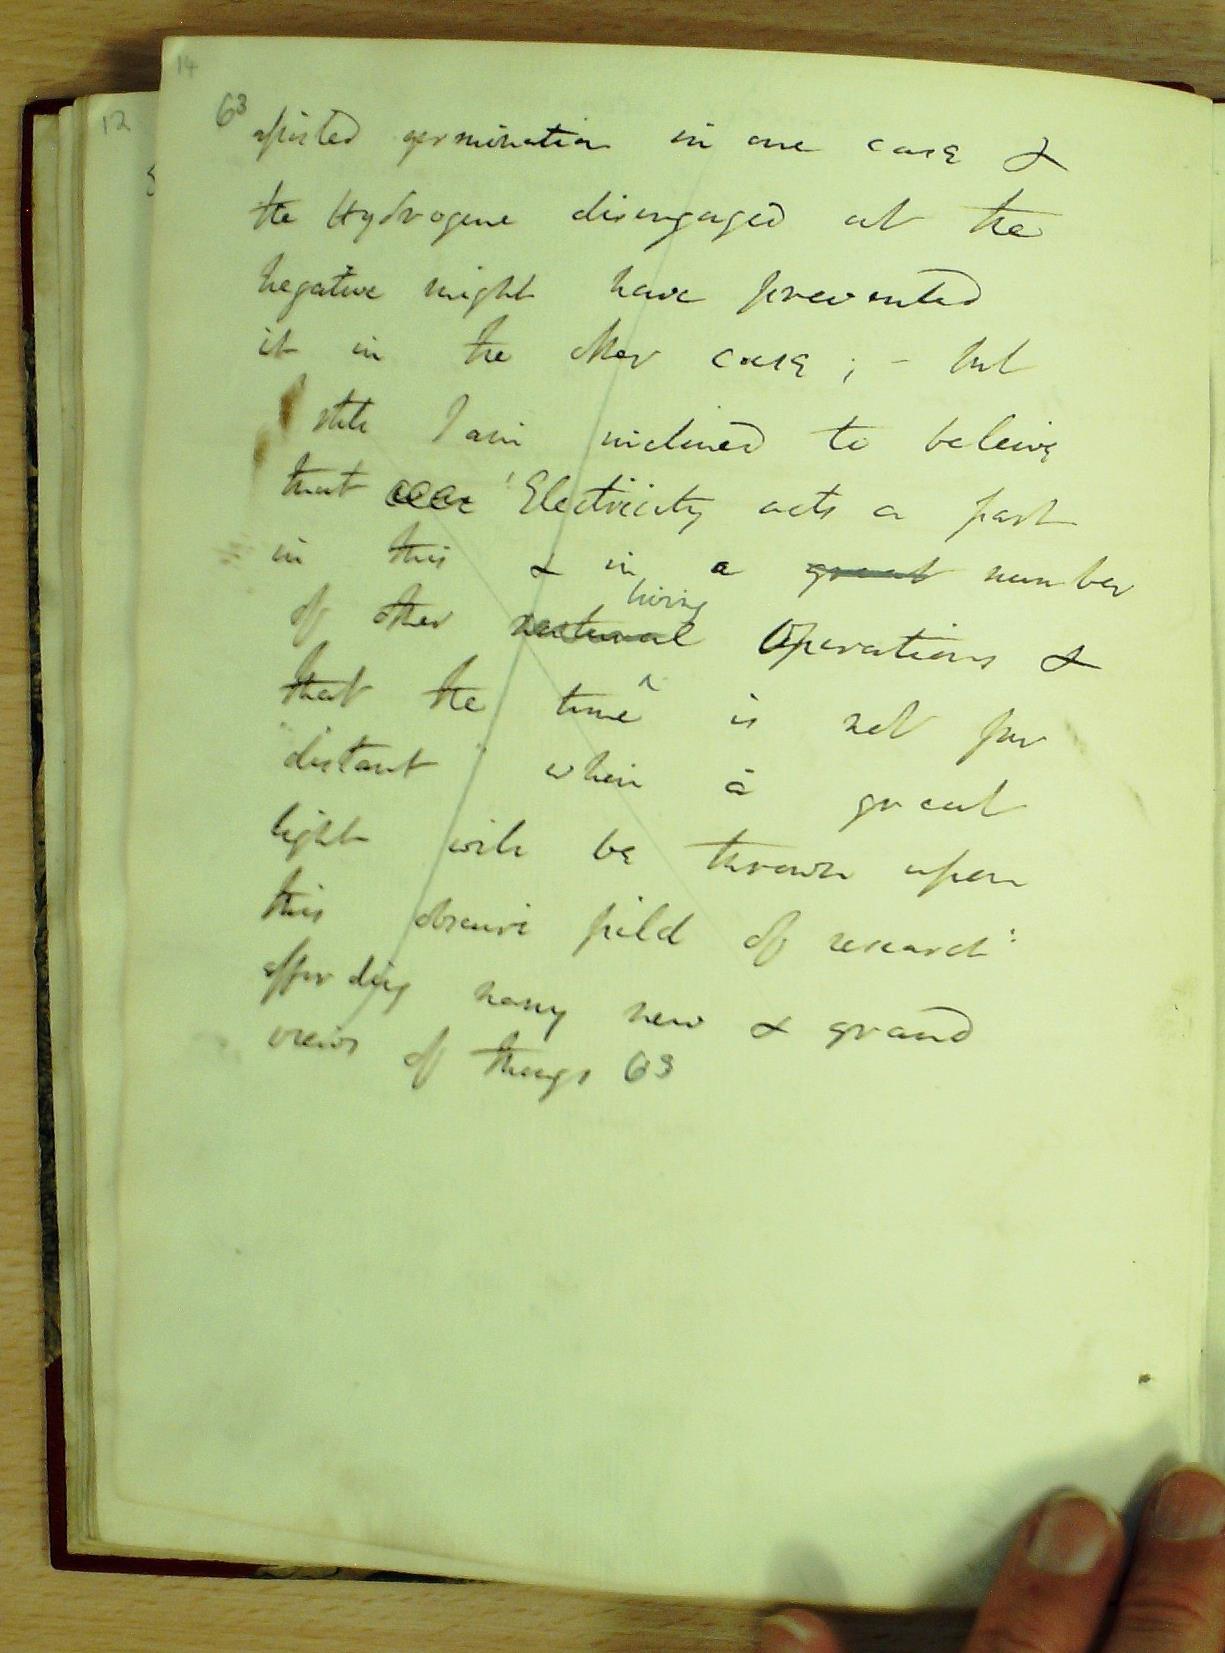 14
12
63
assisted germination in one case &
the Hydrogene disengaged at the
negative might have prevented
it in the other case; - but
still I am inclined to beleive
that Electricity acts a part
in this & in a great number
of other natural living Operations &
that the time is not far
distant when a great
light will be thrown upon
this obscure field of research:
affording many new & grand
views of things 63